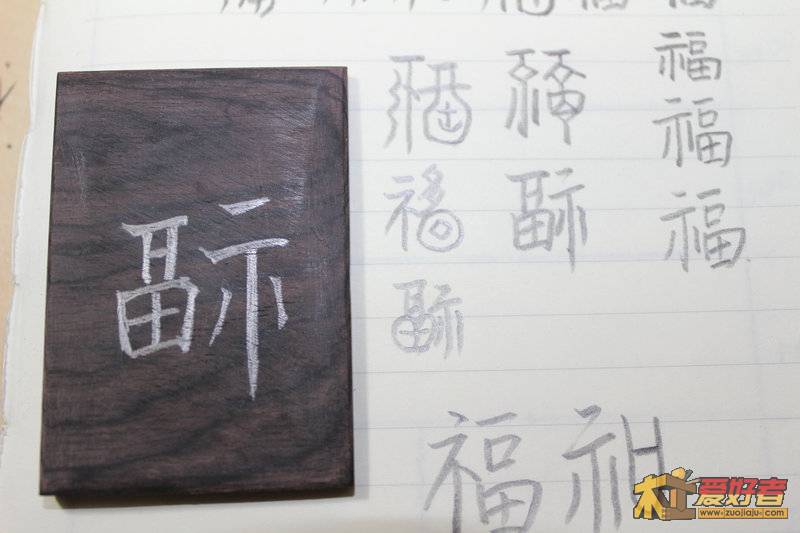 福
福 福 福
福
福 福 福
福
福
木工爱好者
www.zuojiaju.com